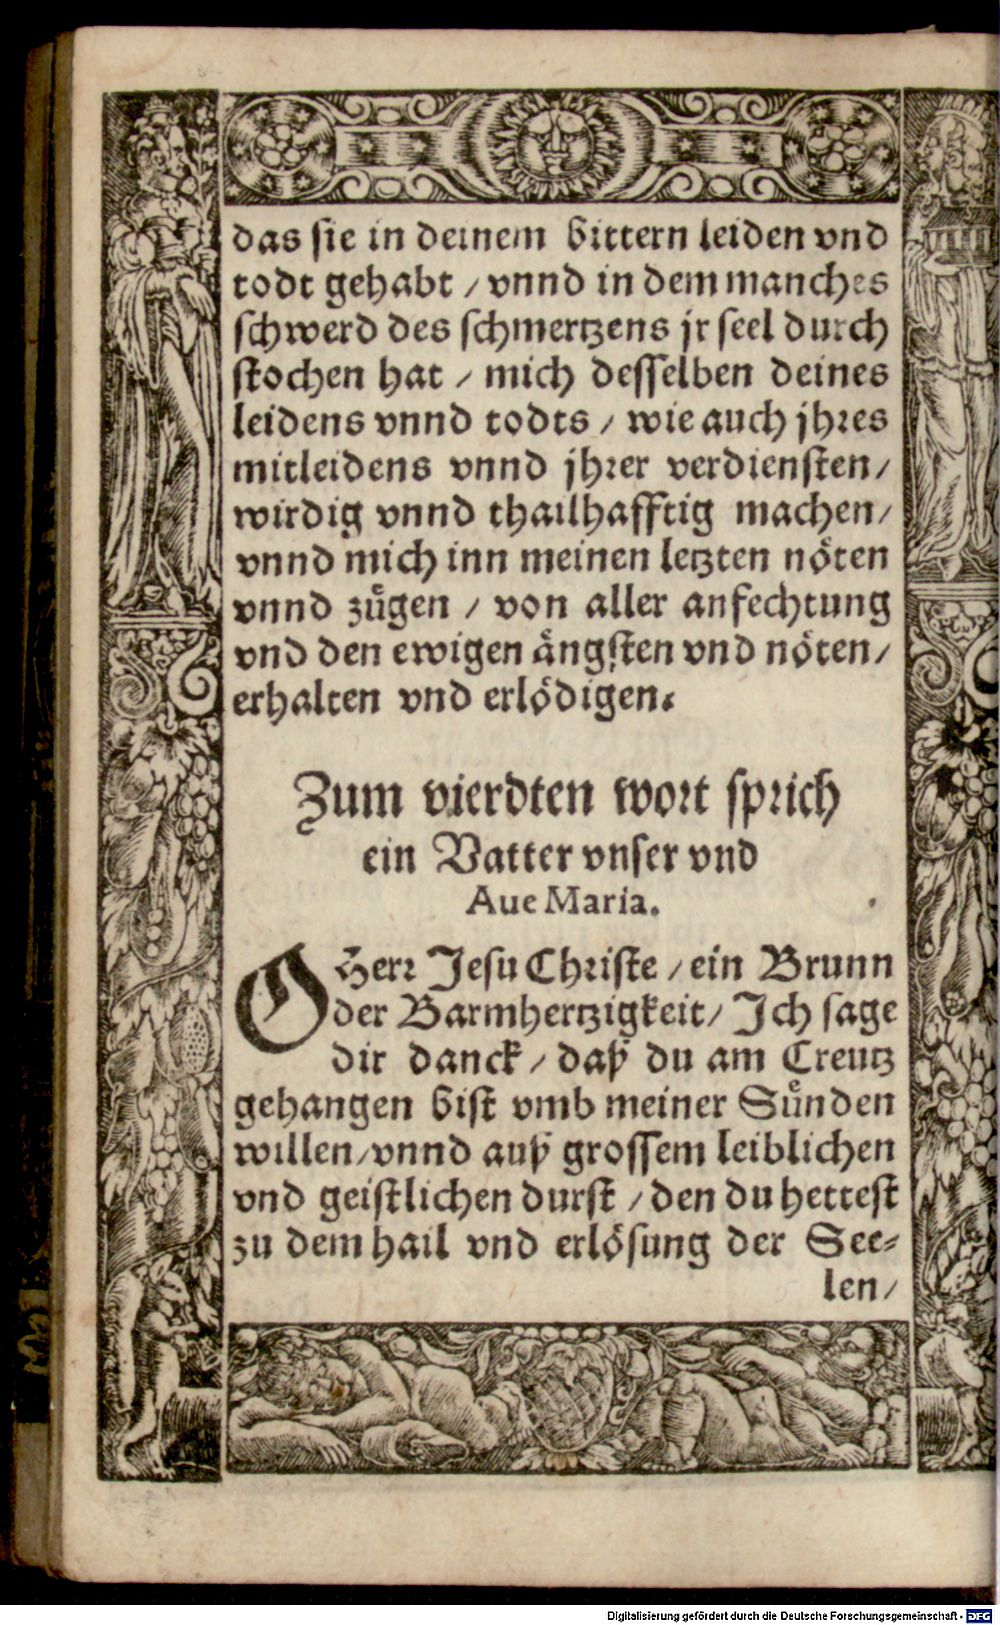 das sie in deinem bittern leiden vnd
todt gehabt / vnnd in dem manches
schwerd des schmertzens jr seel durch
stochen hat / mich desselben deines
leidens vnnd todts / wie auch jhres
mitleidens vnnd jhrer verdiensten /
wirdig vnnd thailhafftig machen /
vnnd mich inn meinen letzten nöten
vnnd zügen / von aller anfechtung
vnd den ewigen ängsten vnd nöten /
erhalten vnd erlödigen.
Zum vierdten wort sprich
ein Vatter vnser vnd
Aue Maria.
O Herr Jesu Christe / ein Brunn
der Barmhertzigkeit / Ich sage
dir danck / daß du am Creutz
gehangen bist vmb meiner Sünden
willen / vnnd auß grossem leiblichen
vnd geistlichen durst / den du hettest
zu dem hail vnd erlösung der See-
len /
Digitalisierung gefördert durch die Deutsche Forschungsgemeinschaft - DFG